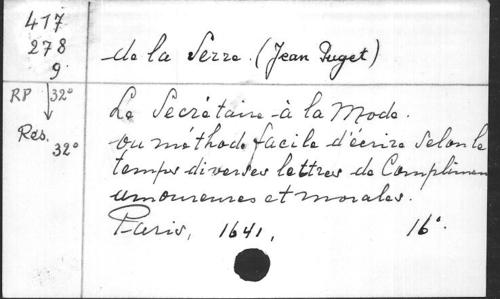 417
278
9.
RP 32°
Rés. 32°
de la Serre. (Jean Puget)
Le Secrétaire à la Mode.
ou méthode facile d'écrire selon le
temps diverses lettres de Complimen
amoureuses et morales.
Paris, 1641, 16°.